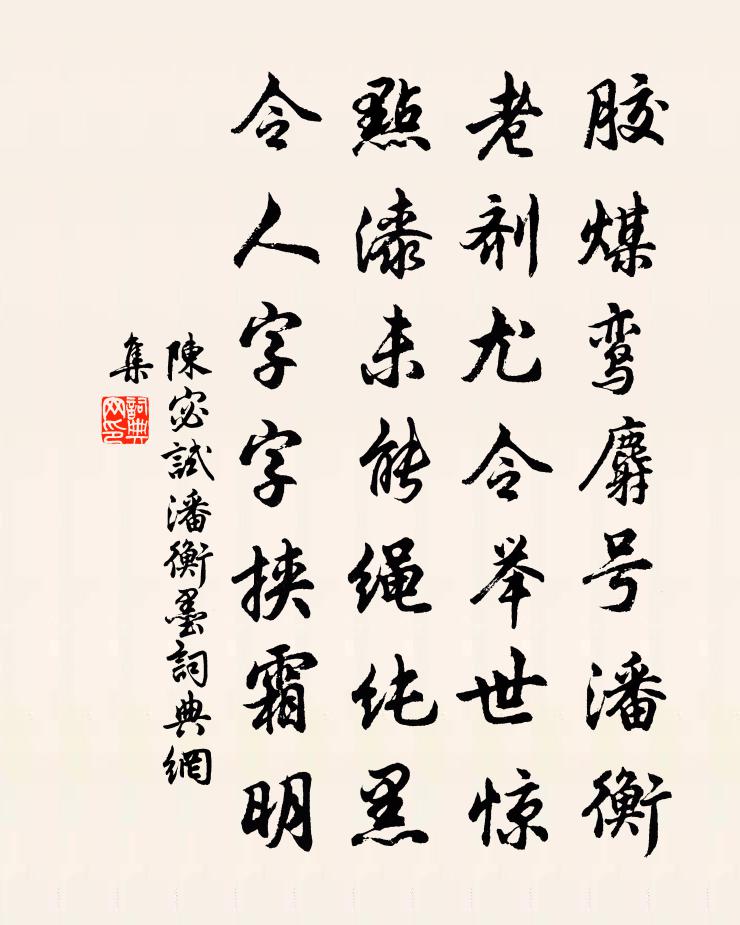 胶煤鸾麝号潘衡
老剂尤令举世惊
點漆未能绳纯黑
令人字字挟霜明
陳宓試潘衡墨詞典網
集
詞典
网印